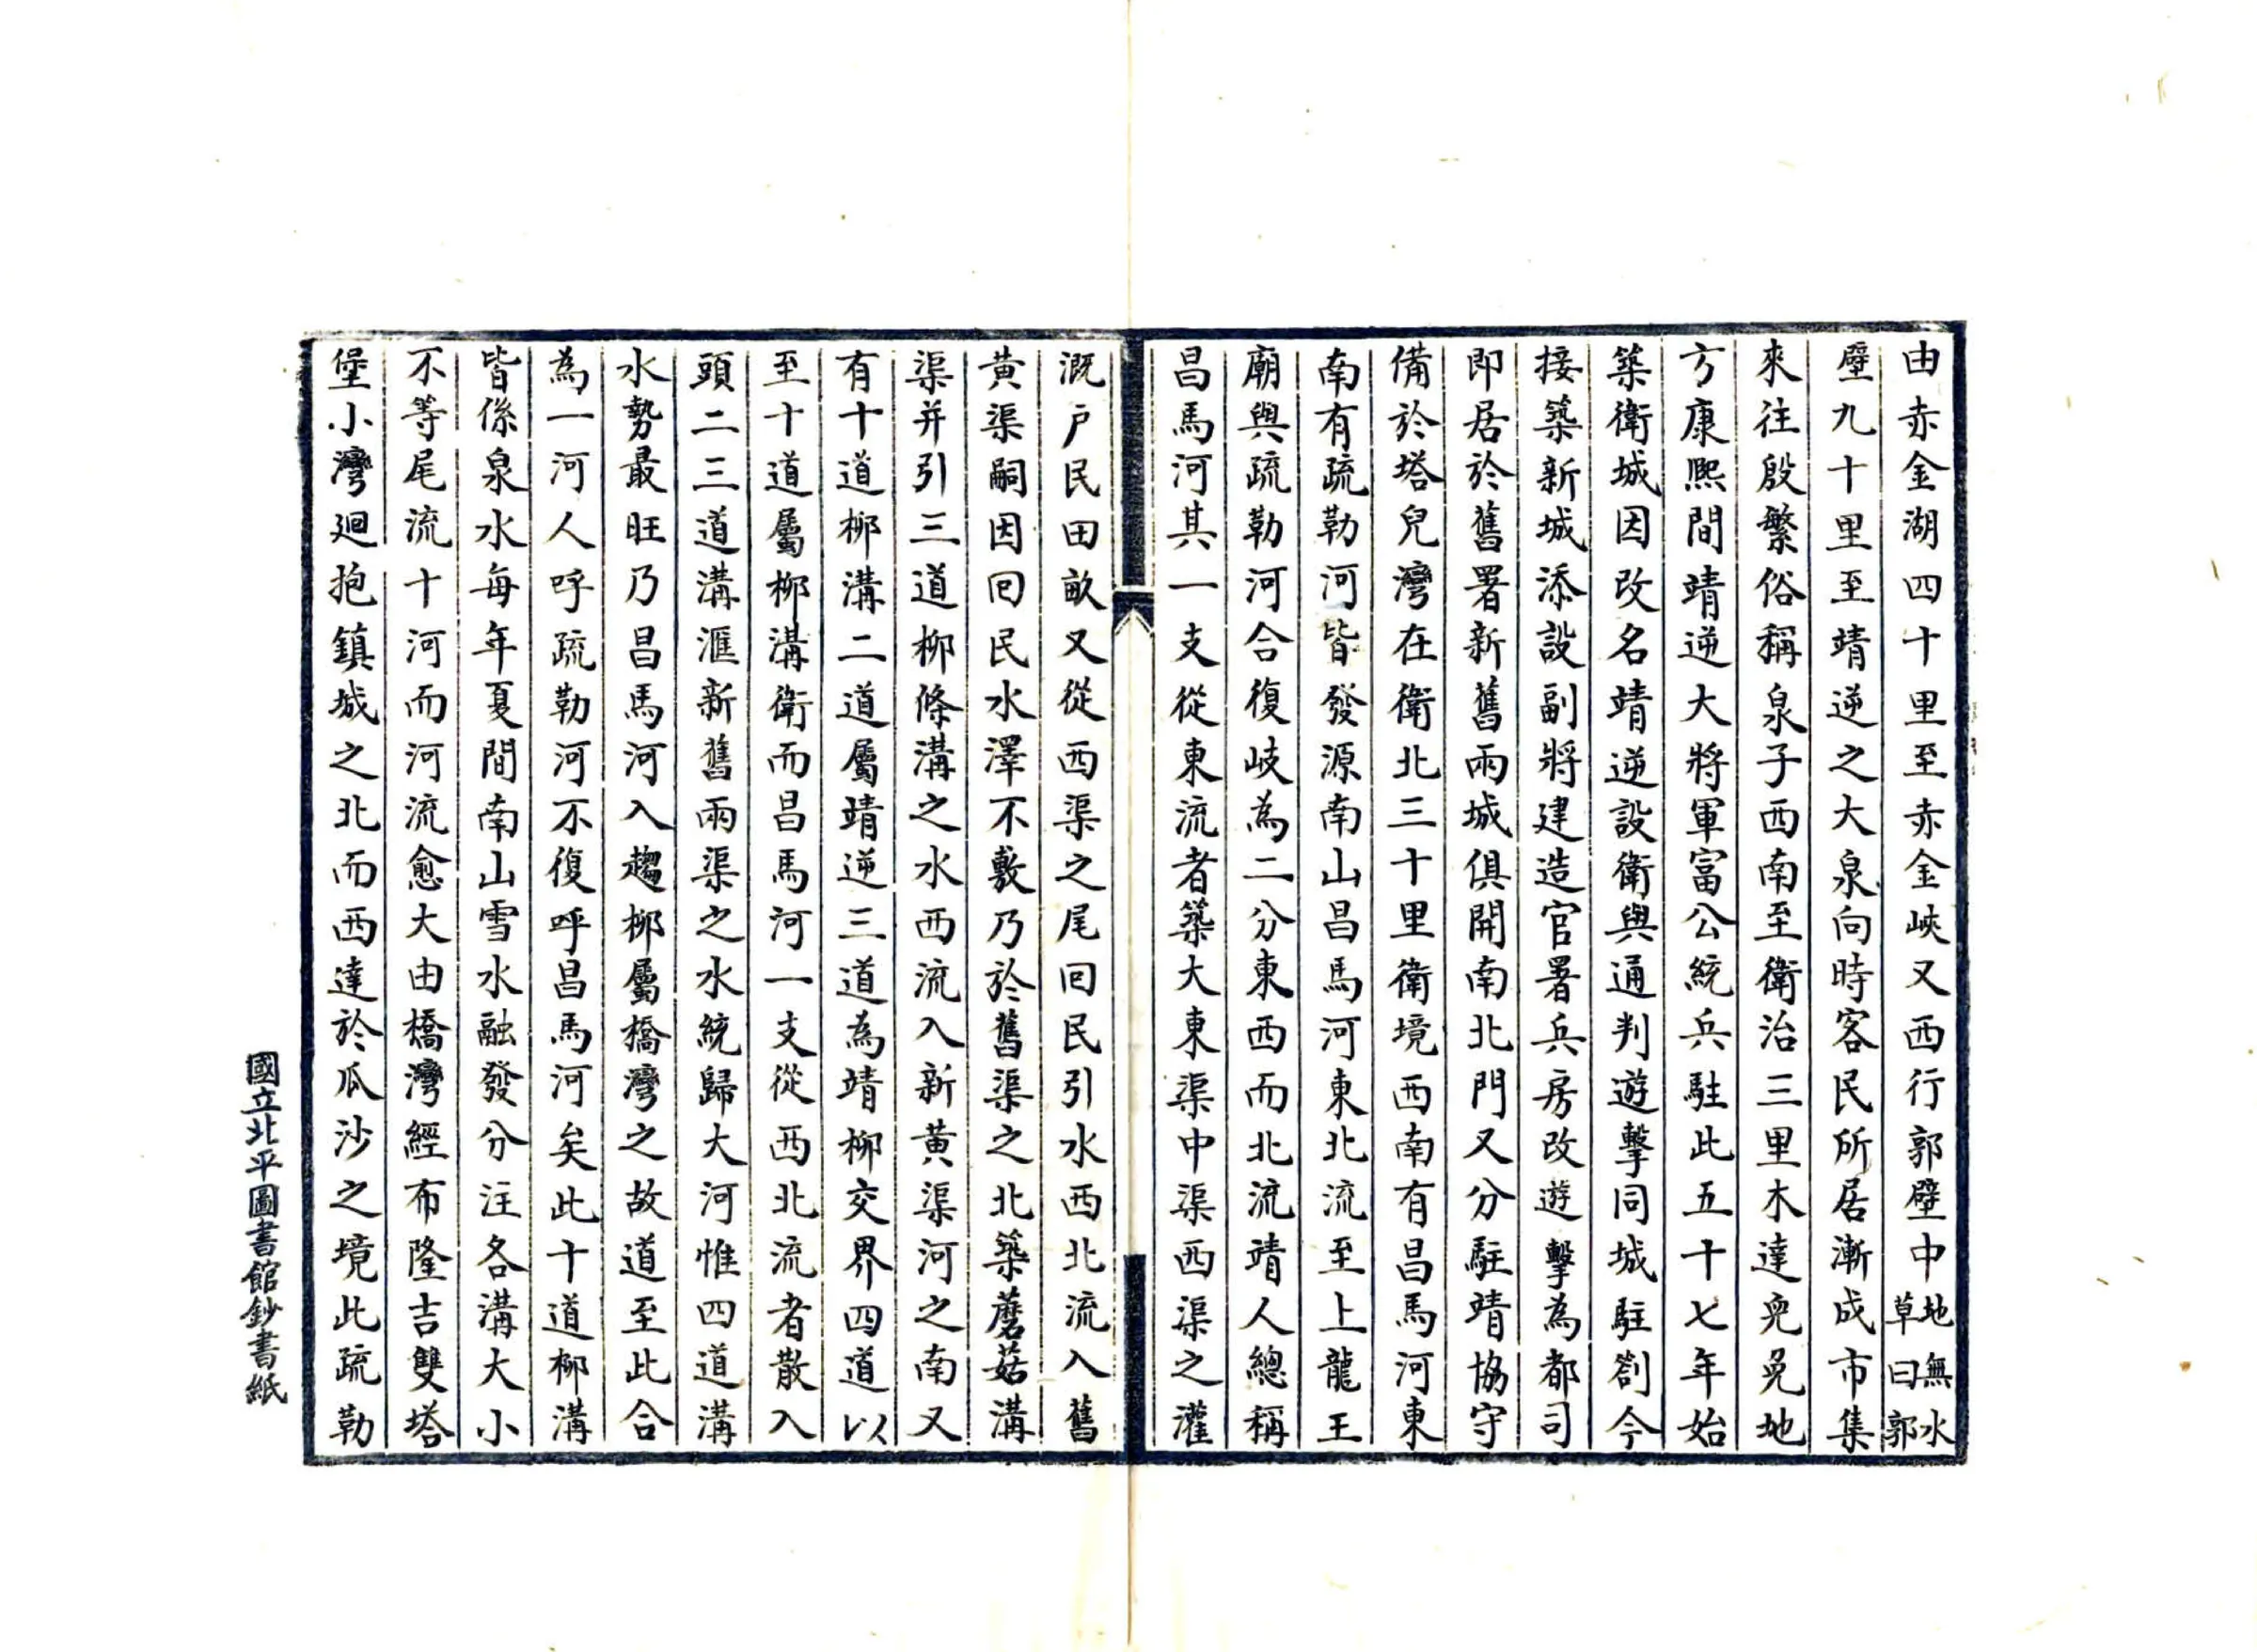 由赤金湖四十里至赤金峽又西行郭壁中地無水草曰郭
壁九十里至靖逆之大泉向時客民所居漸成市集
來往殷繁俗稱泉子西南至衛治三里木達兜兔地
方康熙間靖逆大將軍富公統兵駐此五十七年始
築衛城因改名靖逆設衛與通判遊擊同城駐劄今
接築新城添設副將建造官署兵房改遊擊為都司
即居於舊署新舊兩城俱開南北門又分駐靖協守
備於塔兒灣在衛北三十里衛境西南有昌馬河東
南有疏勒河皆發源南山昌馬河東北流至上龍王
廟與疏勒河合復岐為二分東西而北流靖人總稱
昌馬河其一支從東流者築大東渠中渠西渠之灌
溉户民田畝又從西渠之尾回民引水西北流入舊
黃渠嗣因回民水澤不敷乃於舊渠之北築蘑菇溝
渠并引三道柳條溝之水西流入新黃渠河之南又
有十道柳溝二道屬靖逆三道為靖柳交界四道以
至十道屬柳溝衛而昌馬河一支從西北流者散入
頭二三道溝滙新舊兩渠之水統歸大河惟四道溝
水勢最旺乃昌馬河入趨柳屬橋灣之故道至此合
為一河人呼疏勒河不復呼昌馬河矣此十道柳溝
皆係泉水每年夏間南山雪水融發分注各溝大小
不等尾流十河而河流愈大由橋灣經布隆吉雙塔
堡小灣廻抱鎮城之北而西達於瓜沙之境此疏勒
國立北平圖書館鈔書紙